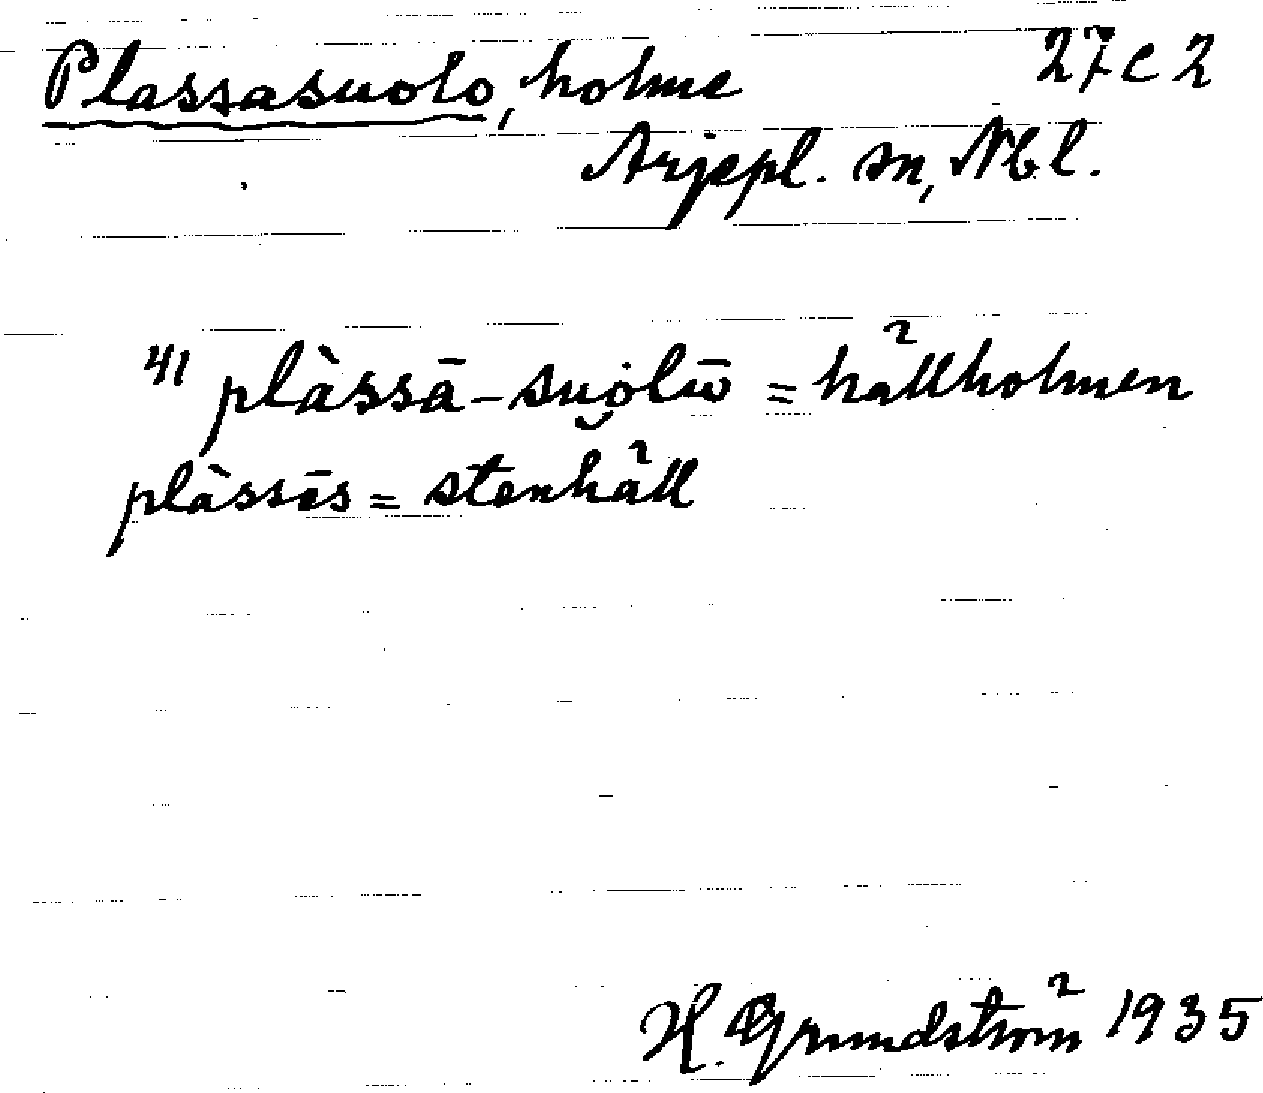 Plassasuolo, holme 27c2
Arjepl. sn, Nbl.
41 plàssā-suo̯lū = hällholmen
plàssēs = stenhäll
H. Grundström 1935